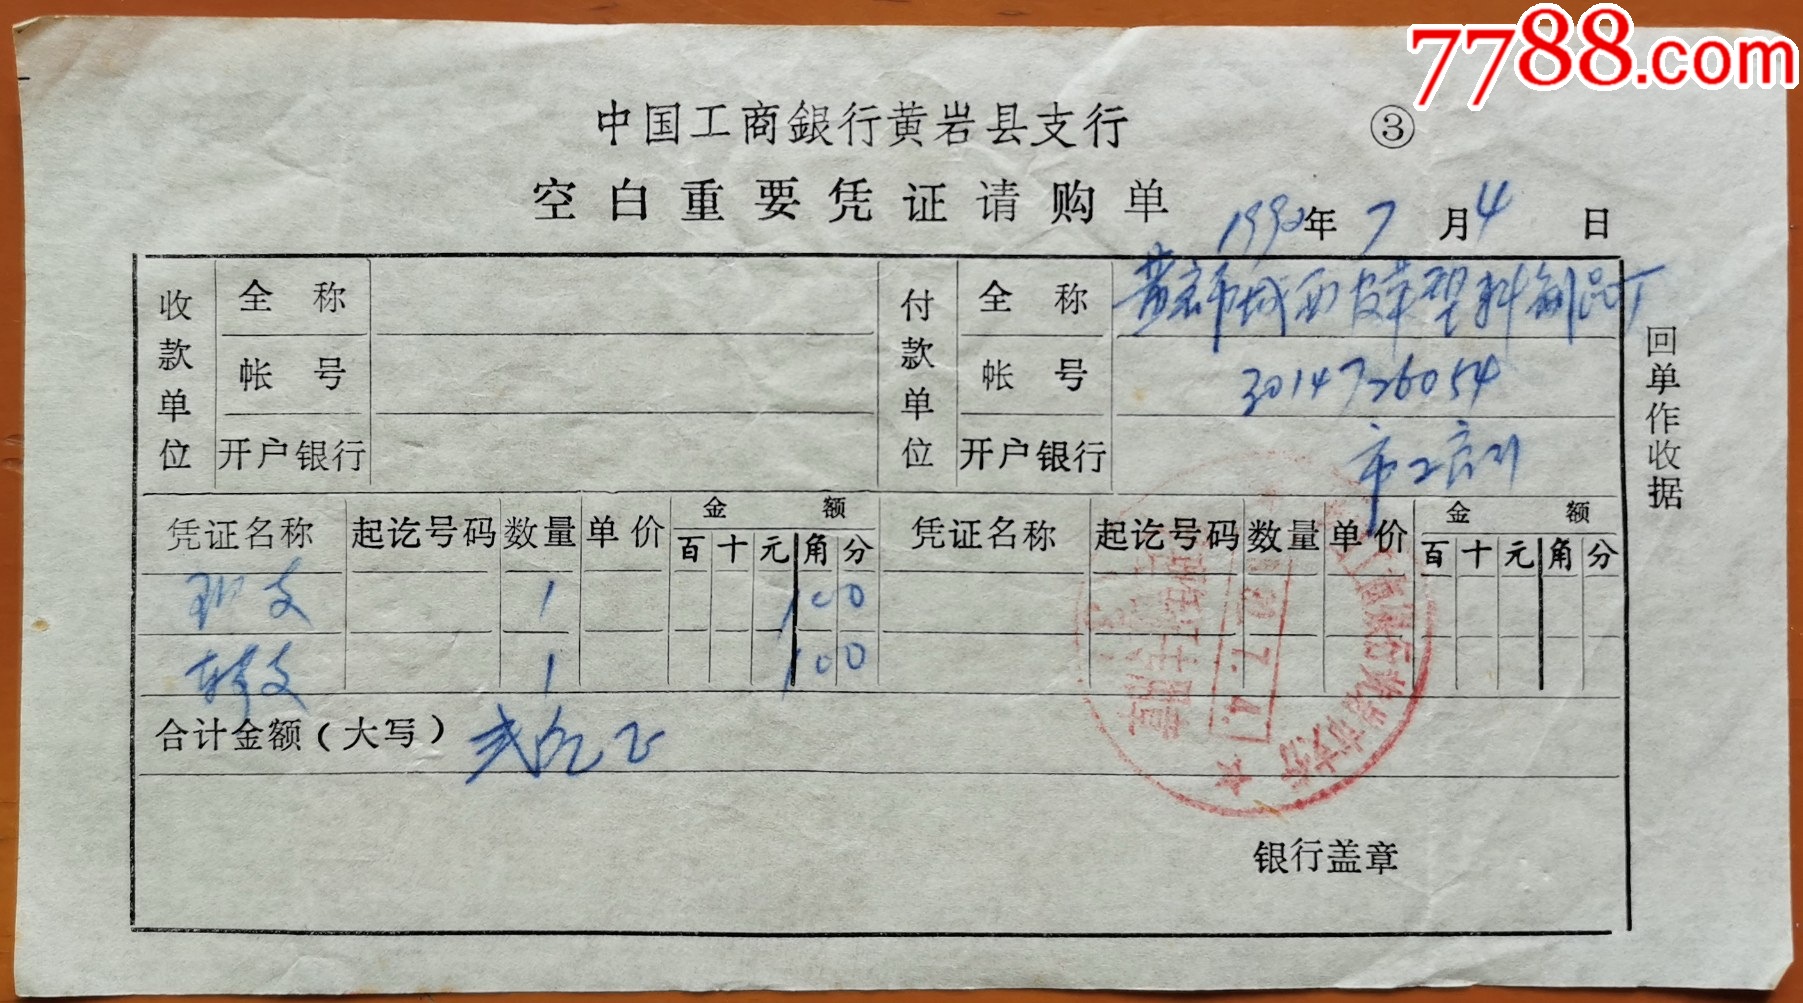 7788.com
中国工商銀行黄岩县支行 ③
空白重要凭证请购单
1992年7月4日
收款单位 全称 付款单位 全称 黄岩市城西皮革塑料制品厂
帐号 帐号 3014726054
开户银行 开户银行 市工商行
回单作收据
凭证名称 起讫号码 数量 单价 金额 凭证名称 起讫号码 数量 单价 金额
百 十 元 角 分 百 十 元 角 分
现支 1 100
转支 1 100
合计金额(大写) 贰元正
银行盖章